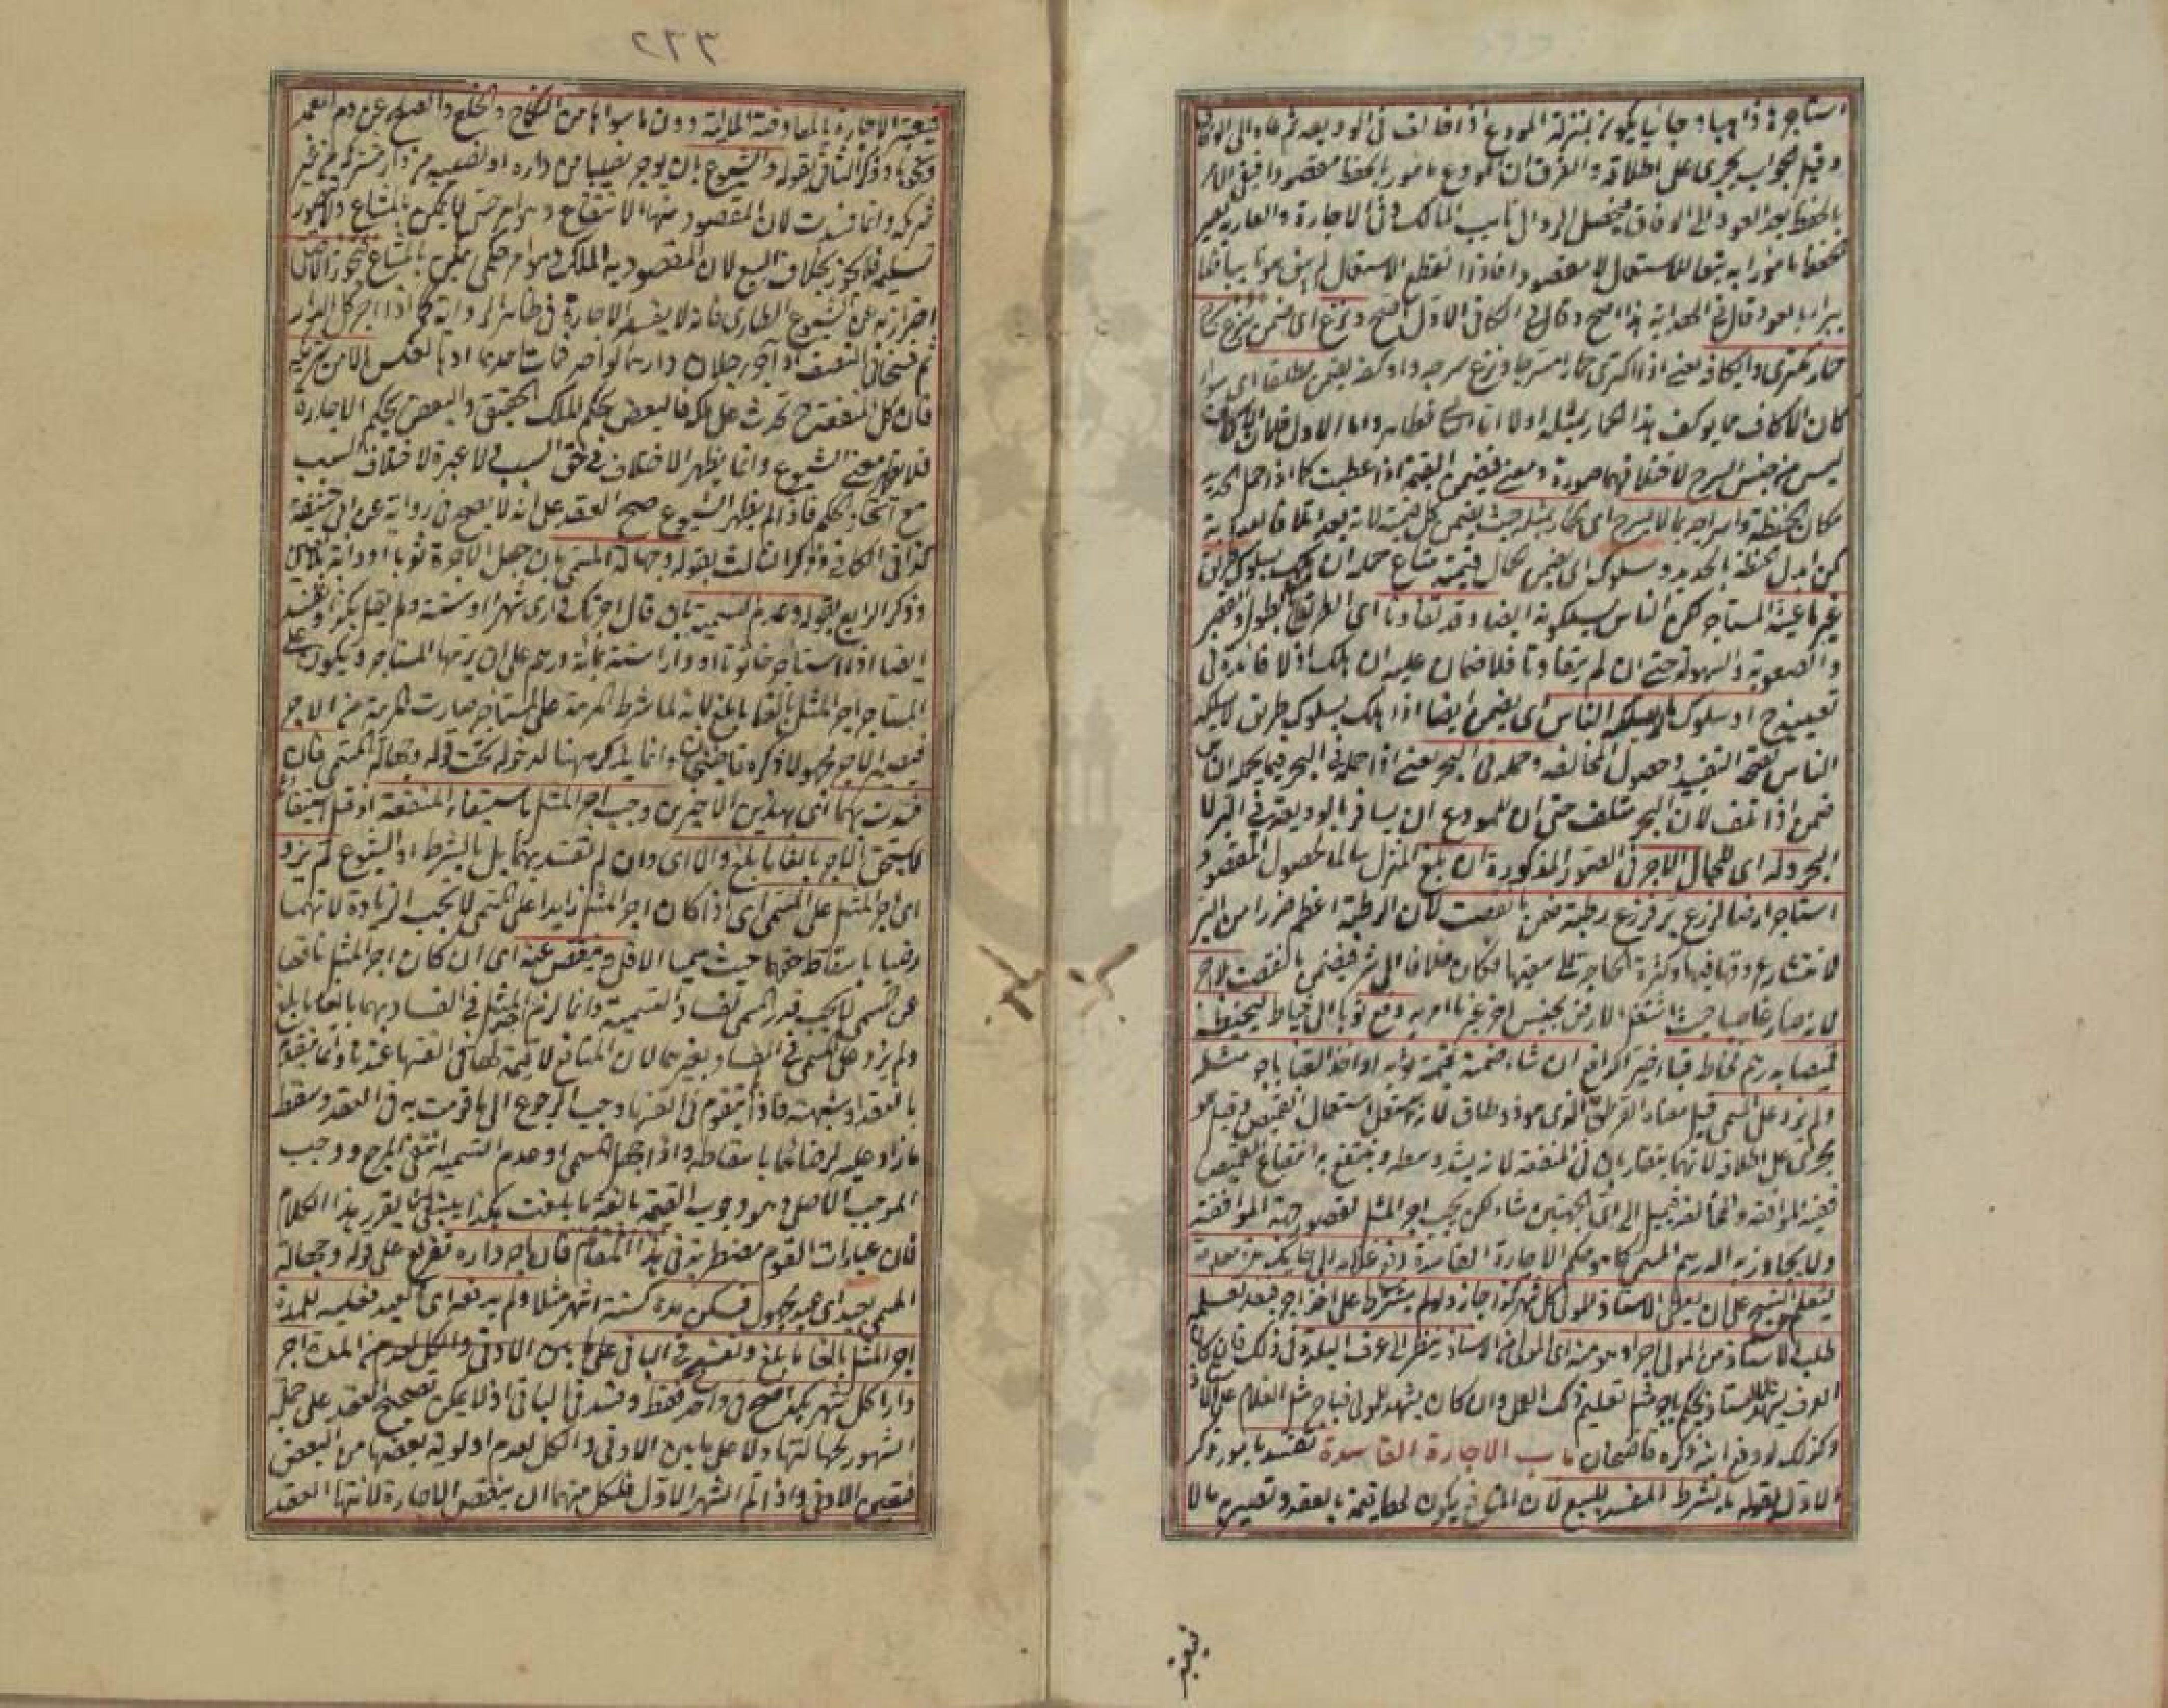 استاجرها ذاهبا وجائيا يكون بمنزلة المودع اذا خالف فى الوديعة ثم عاد الى الوفاق
وقيل الجواب يجرى على اطلاقه والفرق ان المودع مامور بالحفظ مقصودا فبقى الامر
بالحفظ بعد العود الى الوفاق فيحصل الرد الى نايب المالك وفى الاجارة والعارية يصير
الحفظ مامورا به تبعا للاستعمال لا مقصودا فاذا انقطع الاستعمال لم يبق هو نايبا فلا
يبرا بالعود قال فى الهداية هذا اصح وقال فى الكافى الاول اصح ونزع اى ضمن بنزع سرج
حمار مكترى وايكافه يعنى اذا اكترى حمارا مسرجا ونزع سرجه واوكفه يضمن مطلقا اى سواء
كان الاكاف مما يوكف هذا الحمار بمثله اولا اما الثانى فظاهر واما الاول فلان الاكاف
ليس من جنس السرج لاختلافهما صورة ومعنى فيضمن القيمة اذا عطبت كما اذا حمل الحديد
مكان الحنطة واسراجه بما لا يسرج اى الحمار بمثله حيث يضمن كل قيمته لانه يعد اتلافا للدابة
كمن ابدل الحنطة بالحديد وسلوكه اى يضمن الحمال قيمة متاع حمله ان هلك بسلوك طريق
غير ما عينه المستاجر لكن الناس يسلكونه ايضا وقد تفاوتا اى الطريقان بالطول والقصر
والصعوبة والسهولة حتى ان لم يتفاوتا فلا ضمان عليه ان هلك اذ لا فائدة فى
تعيينه ح او سلوك ما لا يسلكه الناس اى يضمن ايضا اذا هلك بسلوك طريق لا يسلكه
الناس لصحة التقييد وحصول المخالفة وحمله فى البحر يعنى اذا حمله فى البحر فيما يحمله الناس
ضمن اذا تلف لان البحر متلف حتى ان للمودع ان يسافر بالوديعة فى البر لا
البحر وله اى للحمال الاجر فى الصور المذكورة ان بلغ المنزل سالما لحصول المقصود
استاجر ارضا لزرع بر فزرع رطبة ضمن ما نقصت لان الرطبة اعظم ضررا من البر
لانتشار عروقها فيها وكثرة الحاجة الى سقيها فكان خلافا الى شر فيضمن ما نقصت بلا اجر
لانه صار غاصبا حيث اشتغل الارض بجنس اخر غير ما امر به دفع ثوبا الى خياط ليخيطه
قميصا بدرهم فخاط قباء خير الدافع ان شاء ضمنه قيمة ثوبه او اخذ القبا باجر مثله
ولم يزد على المسمى قيل معناه القرطق الذى هو ذو طاق لانه يستعمل استعمال القميص وقيل هو
يجرى على اطلاقه لانهما يتقاربان فى المنفعة لانه يشد وسطه وينتفع به انتفاع القميص
ففيه الموافقة والمخالفة فيميل الى اى الجهتين شاء لكن يجب اجر المثل لقصور جهة الموافقة
ولا يجاوز به الدرهم المسمى كما هو حكم الاجارة الفاسدة دفع غلامه الى حايك مدة معلومة
ليتعلم النسج على ان يعطى الاستاذ المولى كل شهر كذا جاز ولو لم يشترط على اخذ اجر فبعد تعليمه
طلب الاستاذ من المولى اجرا وهو منه اى المولى من الاستاذ ينظر الى عرف البلدة فى ذلك فان كان
العرف يشهد للاستاذ يحكم باجر مثل تعليم ذلك العمل وان كان يشهد للمولى فباجر مثل الغلام على الاستاذ
وكذلك لو دفع ابنه ذكره قاضيخان باب الاجارة الفاسدة تفسد بامور ذكر
الاول بقوله بالشرط المفسد للبيع لان المنافع يكون لها قيمة بالعقد وتصير به مالا
فتعتبر
٢٣٣
فتعتبر الاجارة بالمعاوضة المالية دون ما سواها من النكاح والخلع والصلح عن دم العمد
ونحوها وذكر الثانى بقوله والشيوع بان يوجر نصيبا من داره او نصيبه من دار مشتركة من غير
شريكه وانما فسدت لان المقصود منها الانتفاع وهو امر حسى لا يمكن بالمشاع ولا يتصور
تسليمه فلا يجوز بخلاف البيع لان المقصود به الملك وهو امر حكمى يمكن بالمشاع
احترز به عن الشيوع الطارى فانه لا يفسد الاجارة فى ظاهر الرواية كما اذا اجر كل الدار
ثم فسخا فى النصف او آجر رجلان دارهما لواحد فمات احدهما او بالعكس الا من شريكه
فان كل المنفعة ح تحدث على ملكه فالبعض بحكم الملك الحقيقى والبعض بحكم الاجارة
فلا يظهر معنى الشيوع وانما يظهر الاختلاف فى حق السبب ولا عبرة لاختلاف السبب
مع اتحاد الحكم فاذا لم يظهر الشيوع صح العقد على انه لا يصح فى رواية عن ابى حنيفة
كذا فى الكافى وذكر الثالث بقوله وجهالة المسمى بان جعل الاجرة ثوبا او دابة بلا
وذكر الرابع بقوله وعدم التسمية بان قال اجرتك دارى شهرا او سنة ولم يقل بكذا وتفسد
ايضا اذا استاجر حانوتا او دارا سنة بمائة درهم على ان يرمها المستاجر ويكون على
المستاجر اجر المثل بالغا ما بلغ لانه لما شرط المرمة على المستاجر صارت المرمة من الاجر
فيصير الاجر مجهولا ذكره قاضيخان وانما لم يذكر هنا لدخوله تحت قوله وجهالة المسمى فان
فسدت بهما اى بهذين الاخيرين وجب اجر المثل باستيفاء المنفعة او قبل استيفاء
لا يستحق الاجر بالغا ما بلغ والا اى وان لم تفسد بهما بل بالشرط او الشيوع لم يزد
اى اجر المثل على المسمى اى اذا كان اجر المثل زايدا على المسمى لا يجب الزيادة لانهما
رضيا باسقاط حقهما حيث سميا الاقل وينقص عنه اى ان كان اجر المثل ناقصا
عن المسمى لا يجب قدر المسمى لفساد التسمية وانما لزم اجر المثل فى الفساد بهما بالغا ما بلغ
ولم يزد على المسمى فى الفساد بغيرهما لان المنافع لا قيمة لها فى انفسها عندنا وانما تتقوم
بالعقد او بشبهته فاذا لم تتقوم فى انفسها وجب الرجوع الى ما قومت به فى العقد وسقط
ما زاد عليه لرضاهما باسقاطه واذا جهل المسمى او عدم التسمية انتفى المرجح ووجب
الموجب الاصلى وهو وجوب القيمة بالغة ما بلغت هكذا ينبغى ان يقرر هذا الكلام
فان عبارات القوم مضطربة فى هذا المقام فان اجر داره تفريع على قوله وجهالة
المسمى بعبد اى عبد مجهول فسكن مدة كستة اشهر مثلا ولم يدفعه اى العبد فعليه للمدة
اجر المثل بالغا ما بلغ وتفسد فى الباقى على ما بين الادنى والكل لعدم من المدة اجر
دارا كل شهر بكذا صح فى واحد فقط وفسد فى الباقى اذ لا يمكن تصحيح العقد على جملة
الشهور لجهالتها ولا على ما بين الادنى والكل لعدم اولوية بعضها من البعض
فتعين الادنى واذا تم الشهر الاول فلكل منهما ان ينقض الاجارة لانتهاء العقد